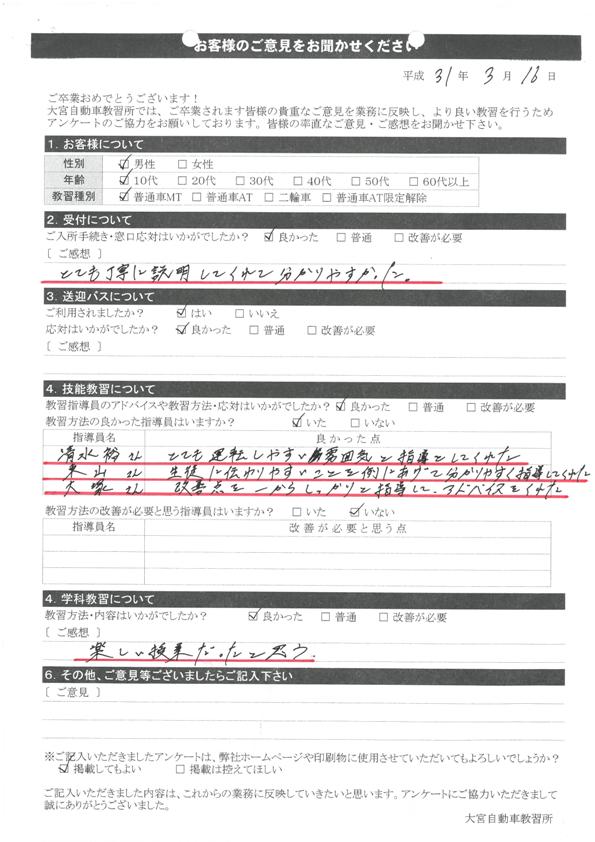 お客様のご意見をお聞かせください
平成 31 年 3 月 16 日
ご卒業おめでとうございます！
大宮自動車教習所では、ご卒業されます皆様の貴重なご意見を業務に反映し、より良い教習を行うため
アンケートのご協力をお願いしております。皆様の率直なご意見・ご感想をお聞かせ下さい。
1. お客様について
性別 ☑男性 □女性
年齢 ☑10代 □20代 □30代 □40代 □50代 □60代以上
教習種別 ☑普通車MT □普通車AT □二輪車 □普通車AT限定解除
2. 受付について
ご入所手続き・窓口応対はいかがでしたか？ ☑良かった □普通 □改善が必要
［ ご感想 ］
とても丁寧に説明してくれて分かりやすかった。
3. 送迎バスについて
ご利用されましたか？ ☑はい □いいえ
応対はいかがでしたか？ ☑良かった □普通 □改善が必要
［ ご感想 ］
4. 技能教習について
教習指導員のアドバイスや教習方法・応対はいかがでしたか？ ☑良かった □普通 □改善が必要
教習方法の良かった指導員はいますか？ ☑いた □いない
指導員名 良かった点
清水裕さん とても運転しやすい雰囲気で指導をしてくれた
東山さん 生徒に伝わりやすいことを例にあげて分かりやすく指導してくれた
大塚さん 改善点を一からしっかりと指導して、アドバイスをくれた
教習方法の改善が必要と思う指導員はいますか？ □いた ☑いない
指導員名 改善が必要と思う点
4. 学科教習について
教習方法・内容はいかがでしたか？ ☑良かった □普通 □改善が必要
［ ご感想 ］
楽しい授業だったと思う.
6. その他、ご意見等ございましたらご記入下さい
［ ご意見 ］
※ご記入いただきましたアンケートは、弊社ホームページや印刷物に使用させていただいてもよろしいでしょうか？
☑掲載してもよい □掲載は控えてほしい
ご記入いただきました内容は、これからの業務に反映していきたいと思います。アンケートにご協力いただきまして
誠にありがとうございました。
大宮自動車教習所